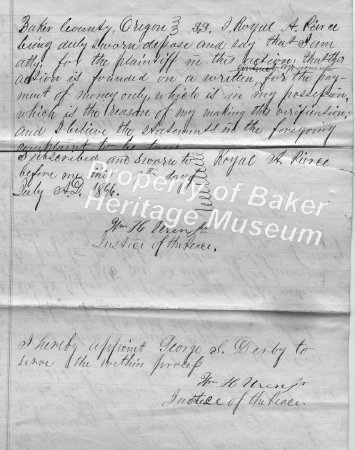 Baker County, Oregon } ss. I Royal A. Pierce
being duly sworn depose and say that I am
atty. for the plaintiff in this action, that the
action is founded on a written for the pay-
ment of money only, which is in my possession,
which is the reason of my making this verification;
and I believe the statements in the foregoing
complaint to be true.
Subscribed and sworn to Royal A. Pierce
before me this day of
July A.D. 1866.
Wm H.
Justice of the Peace.
Property of Baker
Heritage Museum
I hereby appoint George S. Derby to
serve the within process
Wm H.
Justice of the Peace.